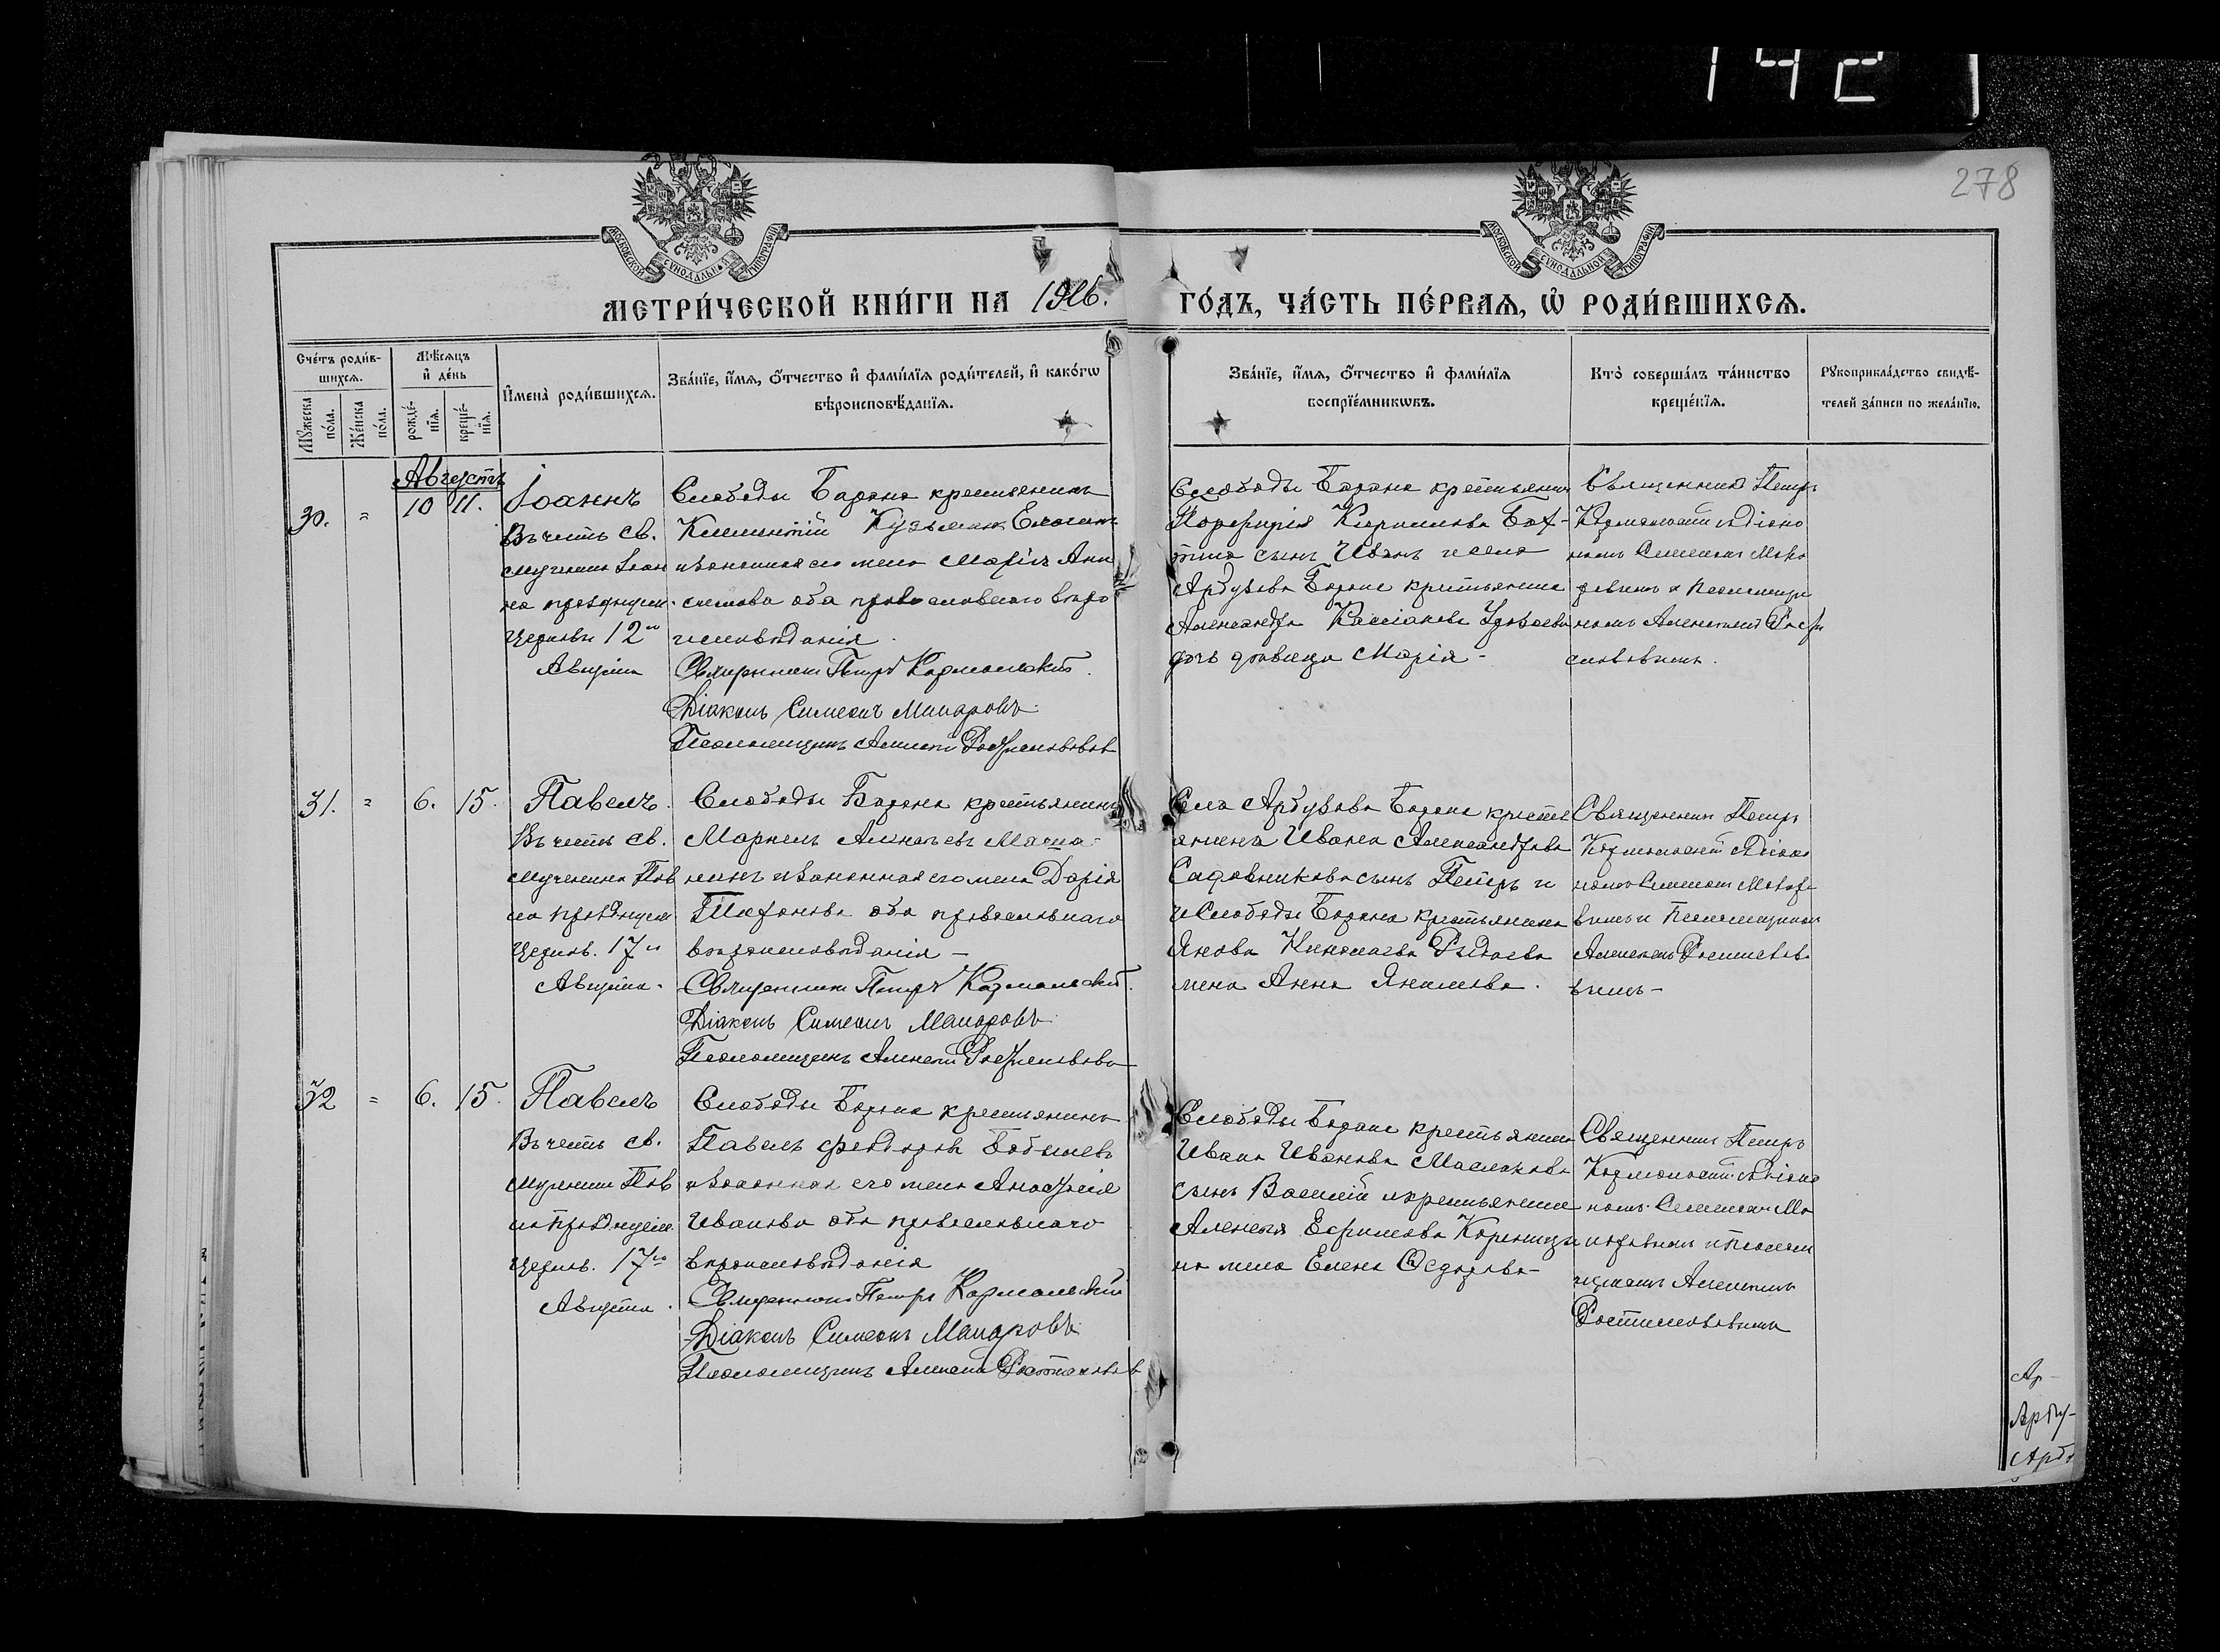 142
278
МОСКОВСКОЙ СѴНОДАЛЬНОЙ ТИПОГРАФІИ
МОСКОВСКОЙ СѴНОДАЛЬНОЙ ТИПОГРАФІИ
МЕТРИ́ЧЕСКОЙ КНИ́ГИ НА 1906.
ГО́ДЪ, ЧА́СТЬ ПЕ́РВАЯ, Ѡ҆ РОДИ́ВШИХСЯ.
Сче́тъ роди́в-
шихся.
Мꙋ́жеска
по́ла.
Же́нска
по́ла.
Мѣ́сяцъ
и҆ де́нь
рожде́-
нїя.
креще́-
нїя.
И҆мена̀ роди́вшихся.
Зва́нїе, и҆́мя, ѻ҆́тчество и҆ фами́лїя роди́телей, и҆ како́гѡ
вѣроисповѣ́данїя.
Зва́нїе, и҆́мя, ѻ҆́тчество и҆ фами́лїя
воспрїе́мникѡвъ.
Кто̀ соверша́лъ та́инство
креще́нїя.
Рꙋкоприкла́дство свидѣ́-
телей за́писи по жела́нїю.
Августъ
30. = 10 11.
Іоаннъ
Въ честь св.
мученика Іоан
на празднуем.
Церковь 12го
Августа
Слободы Барана крестьянинъ
Климентій Кузьминъ
и законная его жена Марія Ани
симова оба православнаго вѣро
исповѣданія.
Священникъ Петръ Кармальскій.
Діаконъ Симеонъ Макаровъ
Псаломщикъ Алексѣй
Слободы Барана крестьянина
Порфирія Кириллова
сынъ Иванъ и села
Арбузова Барана крестьянина
Александра Кассіанова
дочь дѣвица Марія -
Священникъ Петръ
Кармальскій съ Діако
номъ Симеономъ Мака
ровымъ и Псаломщи
комъ Алексѣемъ
31. = 6. 15.
Павелъ.
Въ честь св.
мученика Пав
ла празднуем
Церков. 17го
Августа.
Слободы Барана крестьянинъ
Маркелъ Алексѣевъ
и законная его жена Дарія
оба православнаго
вѣроисповѣданія -
Священникъ Петръ Кармальскій.
Діаконъ Симеонъ Макаровъ
Псаломщикъ Алексѣй
Села Арбузова Барана крестья
янина Ивана Александрова
Садовникова сынъ Петръ и
и Слободы Барана крестьянина
Якова Николаева
жена Анна Якимова.
Священникъ Петръ
Кармальскій съ Діако
номъ Симеономъ Макаро
вымъ и Псаломщикомъ
Алексѣемъ
вымъ -
32 = 6. 15.
Павелъ
Въ честь св.
мученика Пав
ла празднуем
Церков. 17го
Августа.
Слободы Барана крестьянинъ
Павелъ Ѳедоровъ Бобылевъ
и законная его жена Анастасія
Иванова оба православнаго
вѣроисповѣданія
Священникъ Петръ Кармальскій
Діаконъ Симеонъ Макаровъ
Псаломщикъ Алексѣй
Слободы Барана крестьянина
Ивана Иванова Маслакова
сынъ Василій и крестьянина
Алексѣя Ефимова
на жена Елена Ѳедорова -
Священникъ Петръ
Кармальскій съ Діако
номъ Симеономъ Ма
каровымъ и Псалом
щикомъ Алексѣемъ
Ар-
Арбу-
Арб